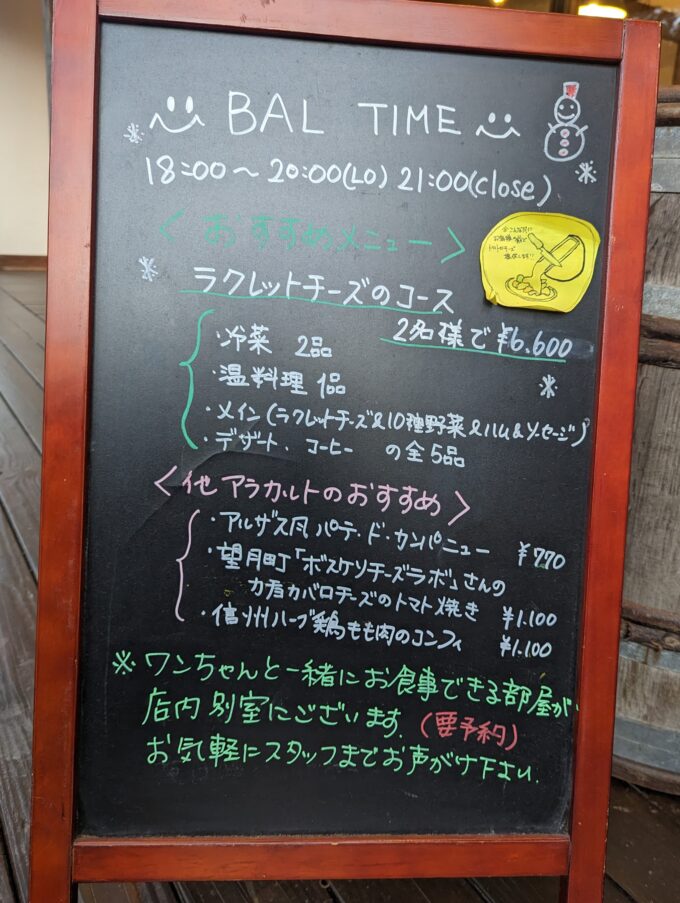 BAL TIME
18:00～20:00(LO) 21:00(close)
＜おすすめメニュー＞
ラクレットチーズのコース
2名様で ¥6.600
・冷菜 2品
・温料理 1品
・メイン(ラクレットチーズ&10種野菜&ハム&ソーセージ)
・デザート、コーヒー の全5品
＜他 アラカルトのおすすめ＞
・アルザス風 パテ・ド・カンパニュー ¥770
・望月町「ボスケソチーズラボ」さんの
カチョカバロチーズのトマト焼き ¥1.100
・信州ハーブ鶏もも肉のコンフィ ¥1.100
※ワンちゃんと一緒にお食事できる部屋が、
店内 別室にございます.(要予約)
お気軽にスタッフまでお声がけ下さい.